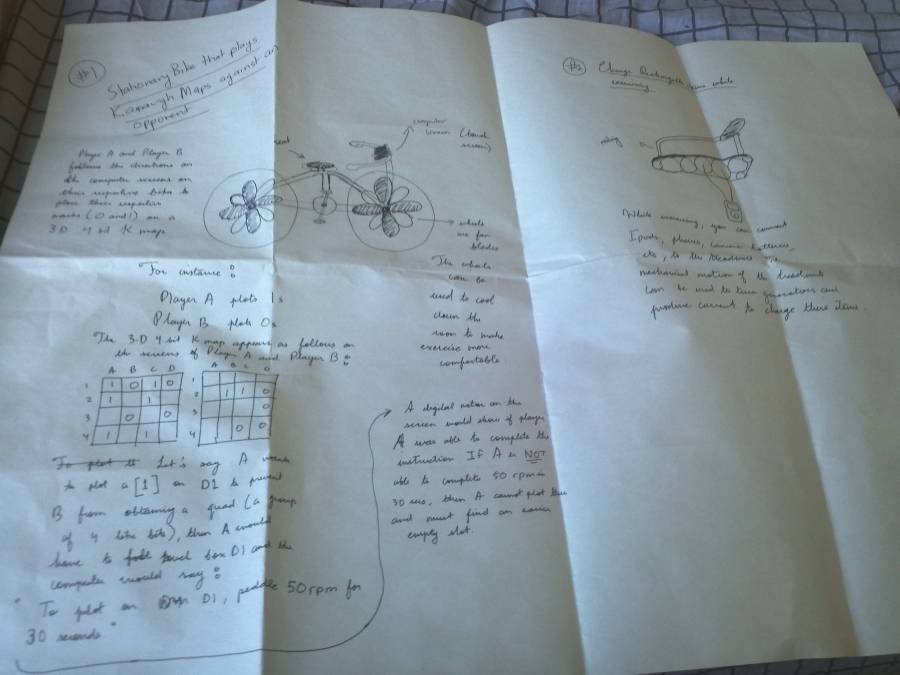 #1
Stationary Bike that plays
Karnaugh Maps against an
opponent
Player A and Player B
follows the directions on
the computer screens on
their respective bikes to
place their respective
marks (0 and 1) on a
3-D 4 bit K map
seat
computer
screen (touch
screen)
wheels
are fan
blades
The wheels
can be
used to cool
down the
room to make
exercise more
comfortable
For instance :
Player A plots 1s
Player B plots 0s
The 3-D 4 bit K map appears as follows on
the screens of Player A and Player B :
A B C D
1 1 0 1 0
2 1
3 0 0
4 1 1
A B C D
1
2 1 1 0
0
4 0 0
Let's say A wants
to plot a [1] on D1 to prevent
B from obtaining a quad (a group
of 4 like bits), then A would
have to touch box D1 and the
computer would say :
"To plot on D1, peddle 50 rpm for
30 seconds"
A digital meter on the
screen would show if player
A was able to complete the
instruction IF A is NOT
able to complete 50 rpm in
30 secs, then A cannot plot there
and must find an easier
empty slot.
#2
Charge Rechargeable while
exercising
While exercising, you can connect
Ipods, phones, camera batteries,
etc, to the treadmill
mechanical motion of the treadmill
can be used to turn generators and
produce current to charge these items.